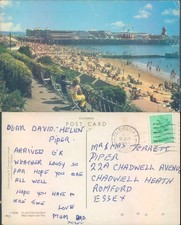 POST CARD
DEAR DAVID, HELEN
PIPER.
ARRIVED O'K
WEATHER LOUSY SO
FAR HOPE YOU ARE
ALL WELL
HOPE YOU HAVE A
NICE
LOVE
MUM DAD
MR & MRS TERRETT
PIPER
22A CHADWELL AVENUE
CHADWELL HEATH
ROMFORD
ESSEX